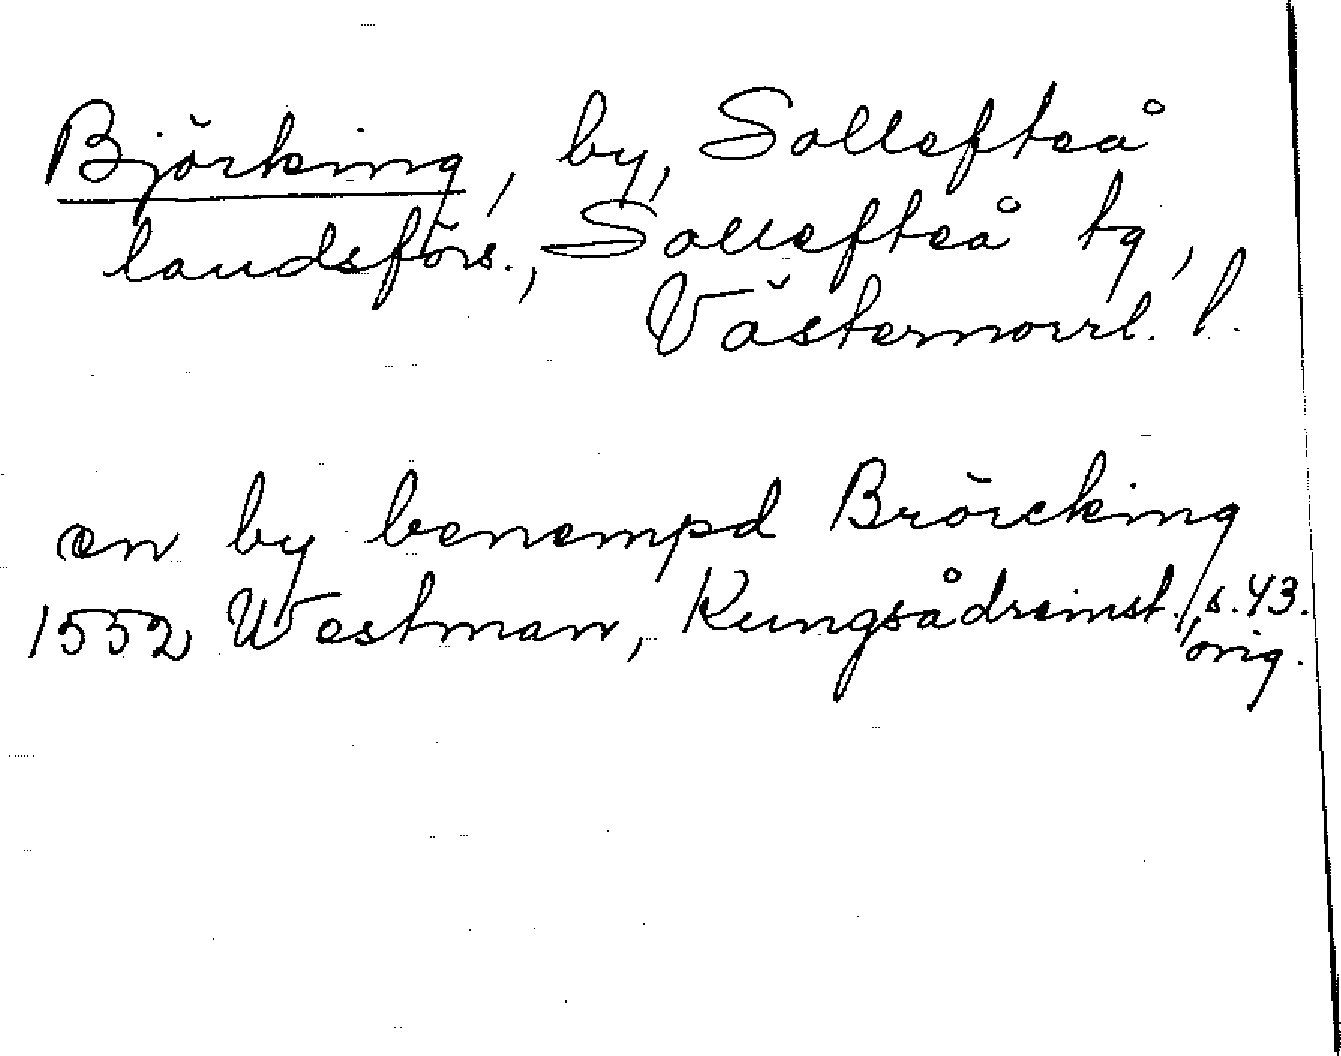 Björking, by, Sollefteå
landsförs., Sollefteå tg,
Västernorrl. l.
en by benempd Bröicking
1552 Westman, Kungsådreinst., s. 43.
orig.